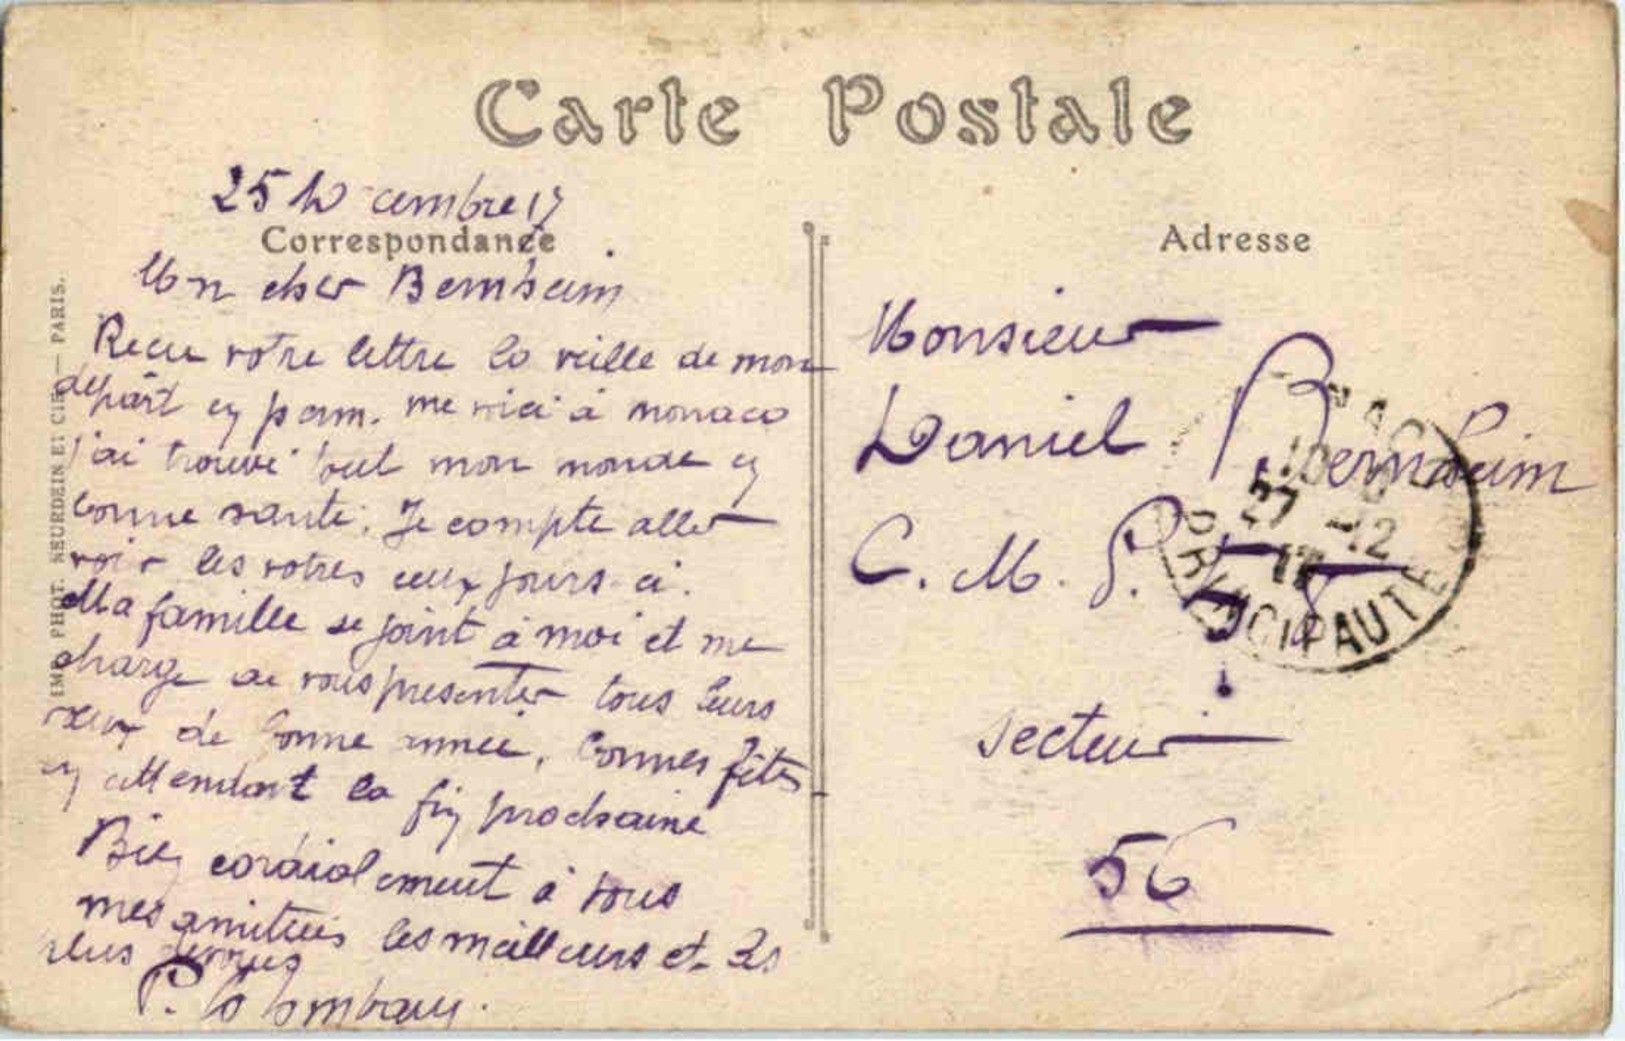 Carte Postale
25 Décembre 17
Correspondance
Mon cher Bernheim
Reçu votre lettre la veille de mon
départ en perm. me voici à monaco
j'ai trouvé tout mon monde en
bonne santé. Je compte aller
voir les votres ceux jours-ci.
Ma famille se joint à moi et me
charge de vous presenter tous leurs
vœux de bonne année, bonnes fêtes
en attendant la fin prochaine
Bien cordialement à vous
mes amitiés les meilleures et les
plus
P. Colombara.
IMP. PHOT. NEURDEIN ET CIE — PARIS.
Adresse
Monsieur
Daniel Bernheim
C. M. P.
secteur
56
27 -12
17
PRINCIPAUTE